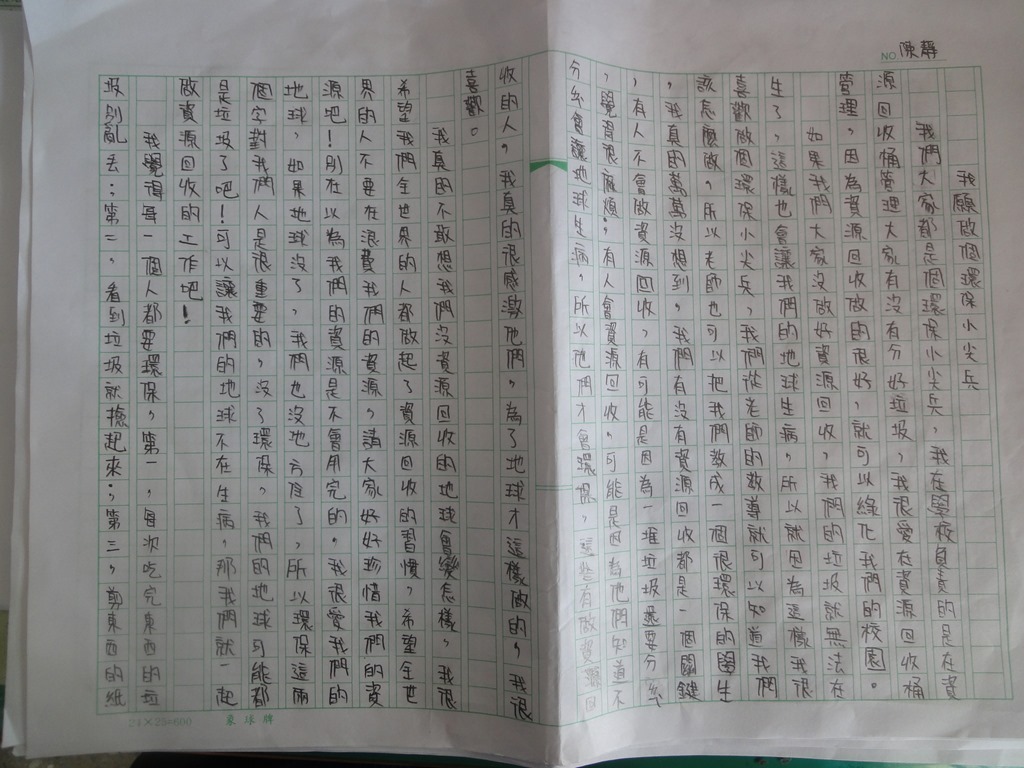 NO. 陳靜
我願做個環保小尖兵
我們大家都是個環保小小尖兵，我在學校負責的是在資
源回收桶管理大家有沒有分好垃圾，我很愛在資源回收桶
管理，因為資源回收做的很好，就可以綠化我們的校園。
如果我們大家沒做好資源回收，我們的垃圾就無法在
生了，這樣也會讓我們的地球生病，所以就因為這樣我很
喜歡做個環保小尖兵，我們從老師的教導就可以知道我們
該怎麼做，所以老師也可以把我們教成一個很環保的學生
，我真的萬萬沒想到，我們有沒有資源回收都是一個關鍵
，有人不會做資源回收，有可能是因為一堆垃圾還要分類
，覺得很麻煩，有人會資源回收，可能是因為他們知道不
分類會讓地球生病，所以他們才會環保，這些有做資源回
收的人，我真的很感激他們，為了地球才這樣做的，我很
喜歡。
我真的不敢想我們沒資源回收的地球會變怎樣，我很
希望我們全世界的人都做起了資源回收的習慣，希望全世
界的人不要在浪費我們的資源，請大家好好珍惜我們的資
源吧！別在以為我們的資源是不會用完的，我很愛我們的
地球，如果地球沒了，我們也沒地方住了，所以環保這兩
個字對我們人是很重要的，沒了環保，我們的地球可能都
是垃圾了吧！可以讓我們的地球不在生病，那我們就一起
做資源回收的工作吧！
我覺得每一個人都要環保，第一，每次吃完東西的垃
圾別亂丟；第二，看到垃圾就撿起來；第三，剪東西的紙
24×25=600 象球牌